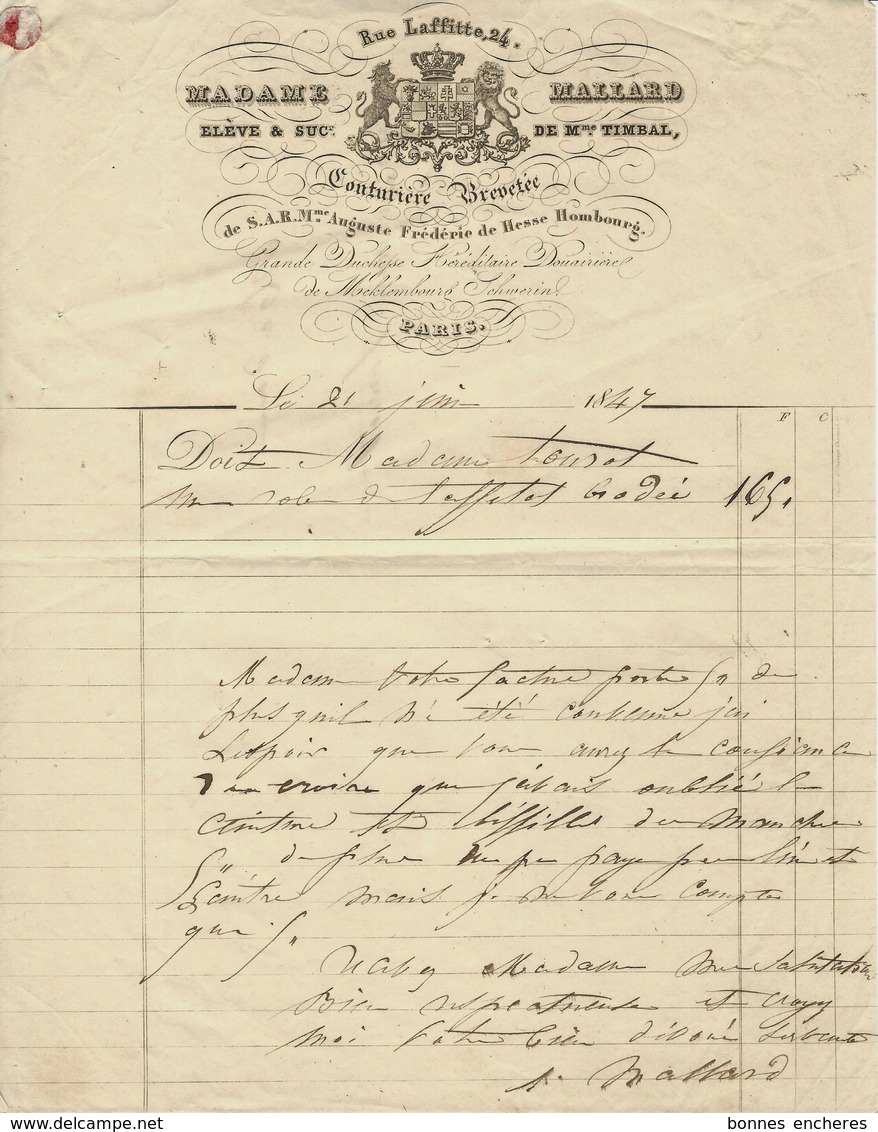 Rue Laffitte, 24.
MADAME MALLARD
ELÈVE & SUCr. DE Mme TIMBAL,
Couturière Brevetée
de S.A.R. Mme Auguste Frédéric de Hesse Hombourg.
Grande Duchesse Héréditaire Douairière
de Mecklembourg Schwerin.
PARIS.
Le 21 juin 1847
F C
Doit Madame
une robe de taffetas brodée 165.
Madame Votre facture porte 5" de
plus quil n'a été convenue jai
Lespoir que vous aurez la confiance
croire que j'avais oublié la
ceinture et des manches
5" de plus ne paye l'un et
Lautre mais je ne vous compte
que 5"
Madame mes salutations
Bien respectueuse et croyez
moi votre bien dévouée servante
Mallard
bonnes encheres